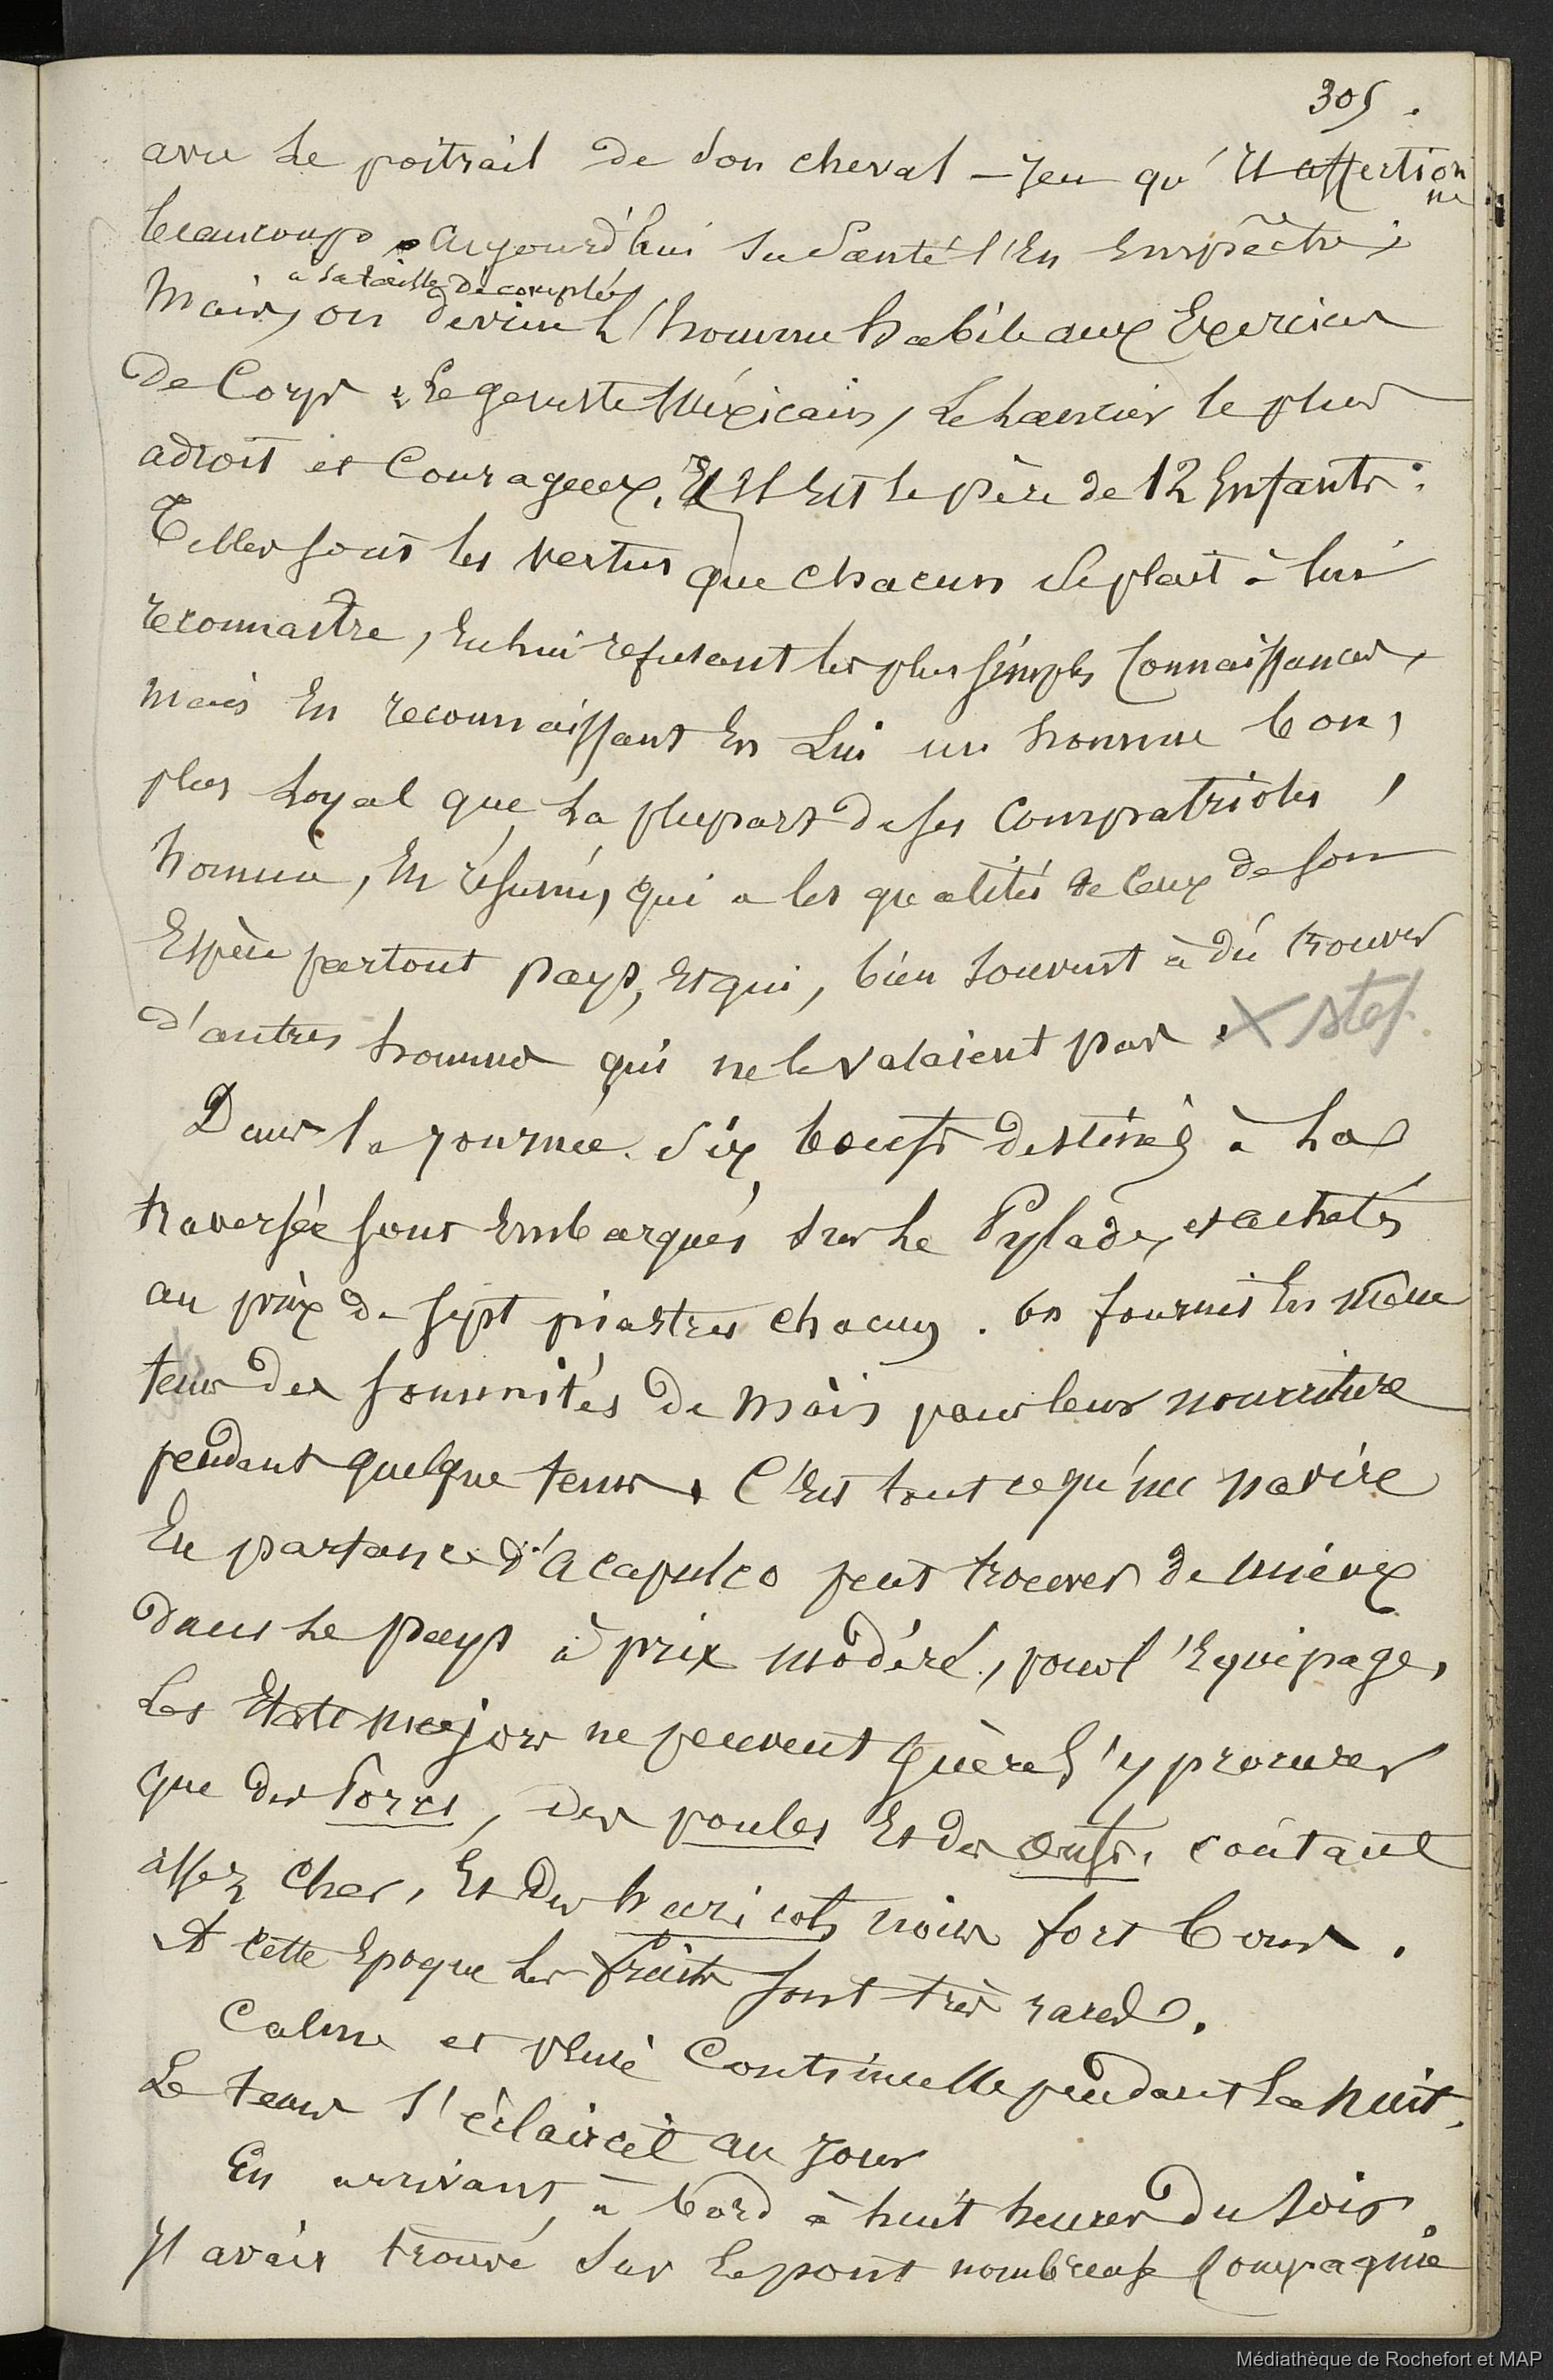 305.
avec le poitrail de son cheval – Jeu qu'Il affection
ne
beaucoup. Aujourd'hui sa Santé l'En Empêche;
à sa taille découplée
Mais, on devine l'homme habile aux Exercices
de Corps, le geniste Méxicain, le lancier le plus
adroit et Courageux. Il Est le père de 12 Enfants.
Telles sont les vertus que chacun se plait à lui
reconnaitre, En lui refusant les plus simples Connaissances,
mais En reconnaissant En Lui un homme bon,
plus Loyal que la plupart de ses Compatriotes,
homme, En résumé, qui a les qualités de Ceux de son
Espèce partout pays, Et qui, bien souvent à dû trouver
d'autres hommes qui ne le valaient pas. X stef.
Dans la journée. Six boeufs destinés à la
traversée sont Embarqués sur le Pylade, et achetés
au prix de sept piastres chacun. On fournit En même
tems des sommités de maïs pour leur nourriture
pendant quelque tems. C'Est tout ce qu'un navire
En partance d'Acapulco peut trouver de mieux
dans le pays à prix modéré, pour l'Equipage,
Les Etats majors ne peuvent guère s'y procurer
que des Porcs, des poules Et des œufs, coûtant
assez cher, Et des haricots noirs fort bons.
A cette Epoque les fruits sont très rares.
Calme et pluie Continuelle pendant la nuit.
Le tems s'éclaircit au jour
En arrivant à bord à huit heures du soir,
Il avais trouvé sur le pont nombreuse Compagnie
Médiathèque de Rochefort et MAP